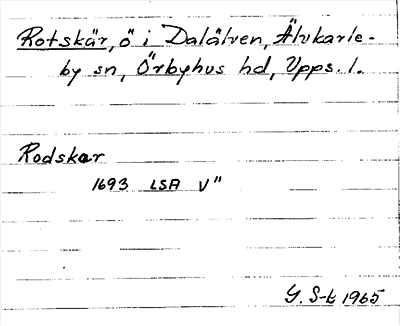 Rotskär, ö i Dalälven, Älvkarle-
by sn, Örbyhus hd, Upps. l.
Rodskar
1693 LSA V"
G. S-t 1965